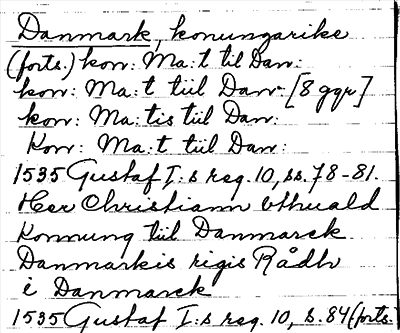 Danmark, konungarike
(forts.) kon: Ma:t til Dan:
kon: Ma:t tiil Dan: [8 ggr]
kon: Ma:tis tiil Dan:
Kon: Ma:t tiil Dan:
1535 Gustaf I:s reg. 10, ss. 78-81.
Her Christiann vthuald
Konnung tiil Danmarck
Danmarkis rigis Rådh
i Danmarck
1535 Gustaf I:s reg. 10, s. 84 (forts.